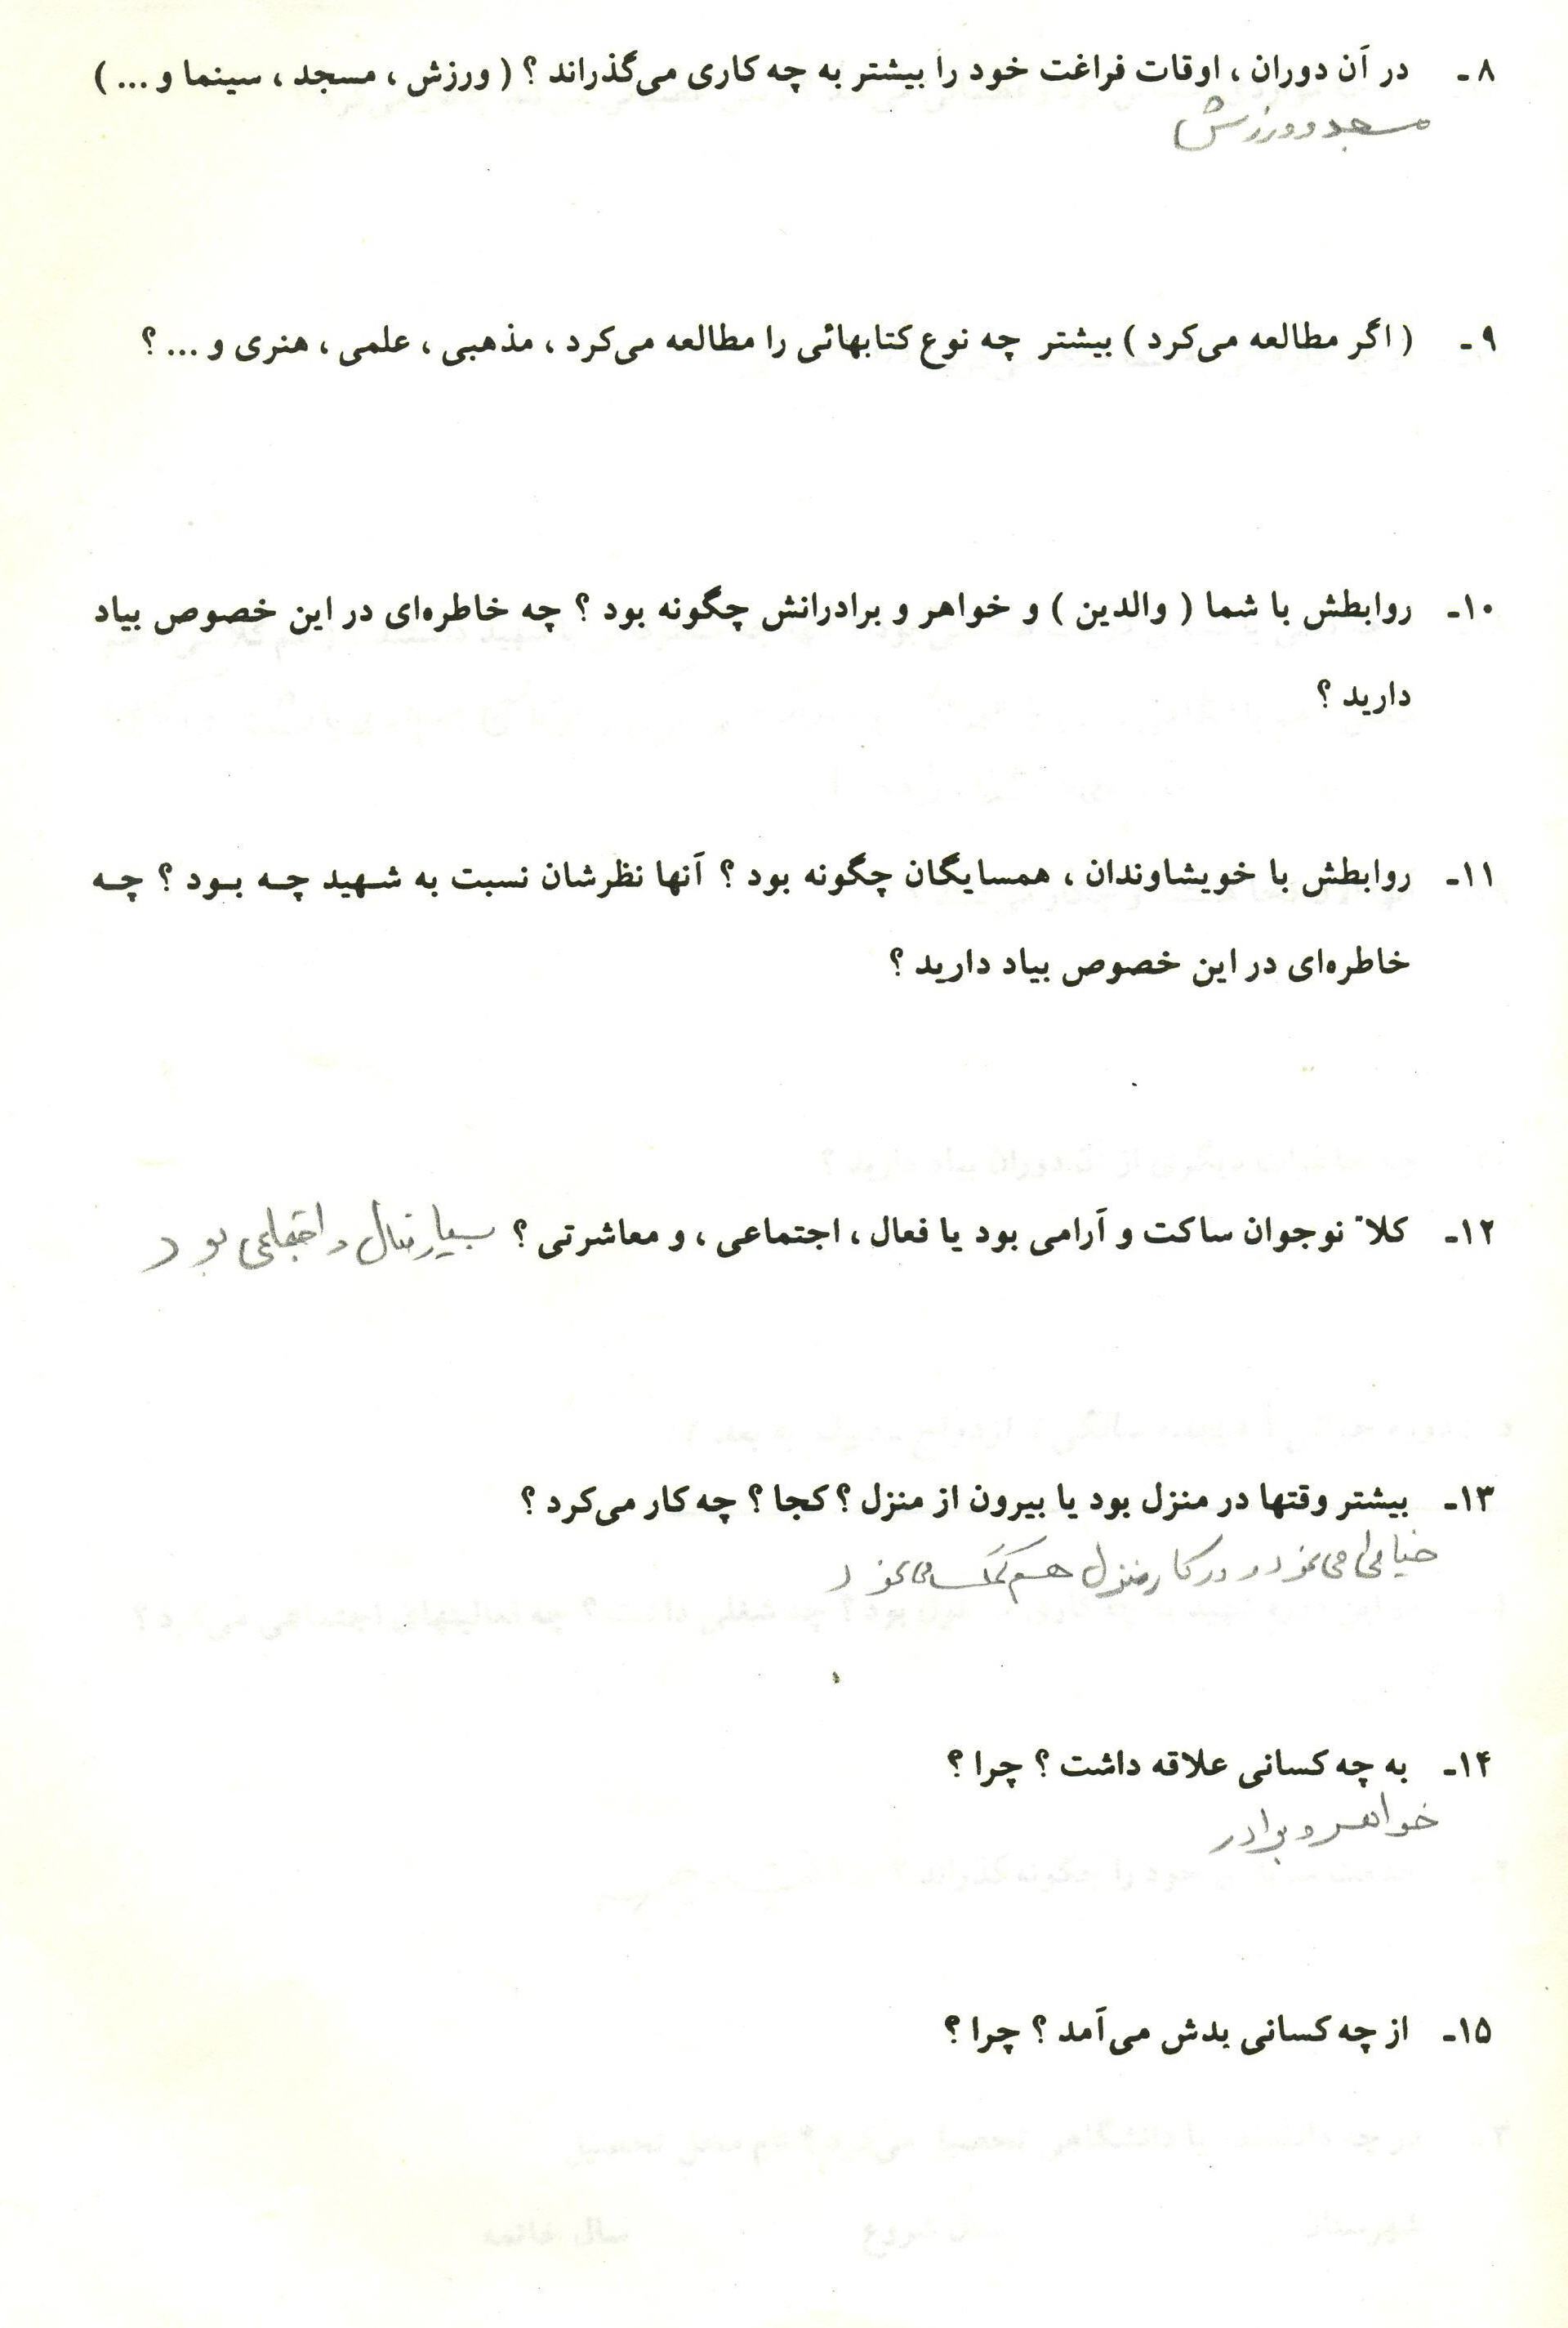 ۸ـ در آن دوران ، اوقات فراغت خود را بیشتر به چه کاری می‌گذراند ؟ ( ورزش ، مسجد ، سینما و ... )
مسجد و ورزش
۹ـ ( اگر مطالعه می‌کرد ) بیشتر چه نوع کتابهائی را مطالعه می‌کرد ، مذهبی ، علمی ، هنری و ... ؟
۱۰ـ روابطش با شما ( والدین ) و خواهر و برادرانش چگونه بود ؟ چه خاطره‌ای در این خصوص بیاد
دارید ؟
۱۱ـ روابطش با خویشاوندان ، همسایگان چگونه بود ؟ آنها نظرشان نسبت به شهید چه بود ؟ چه
خاطره‌ای در این خصوص بیاد دارید ؟
۱۲ـ کلاً نوجوان ساکت و آرامی بود یا فعال ، اجتماعی ، و معاشرتی ؟ بسیار فعال و اجتماعی بود
۱۳ـ بیشتر وقتها در منزل بود یا بیرون از منزل ؟ کجا ؟ چه کار می‌کرد ؟
خیاطی می نمود و در کار منزل هم کمک می نمود
۱۴ـ به چه کسانی علاقه داشت ؟ چرا ؟
خواهر و برادر
۱۵ـ از چه کسانی بدش می‌آمد ؟ چرا ؟